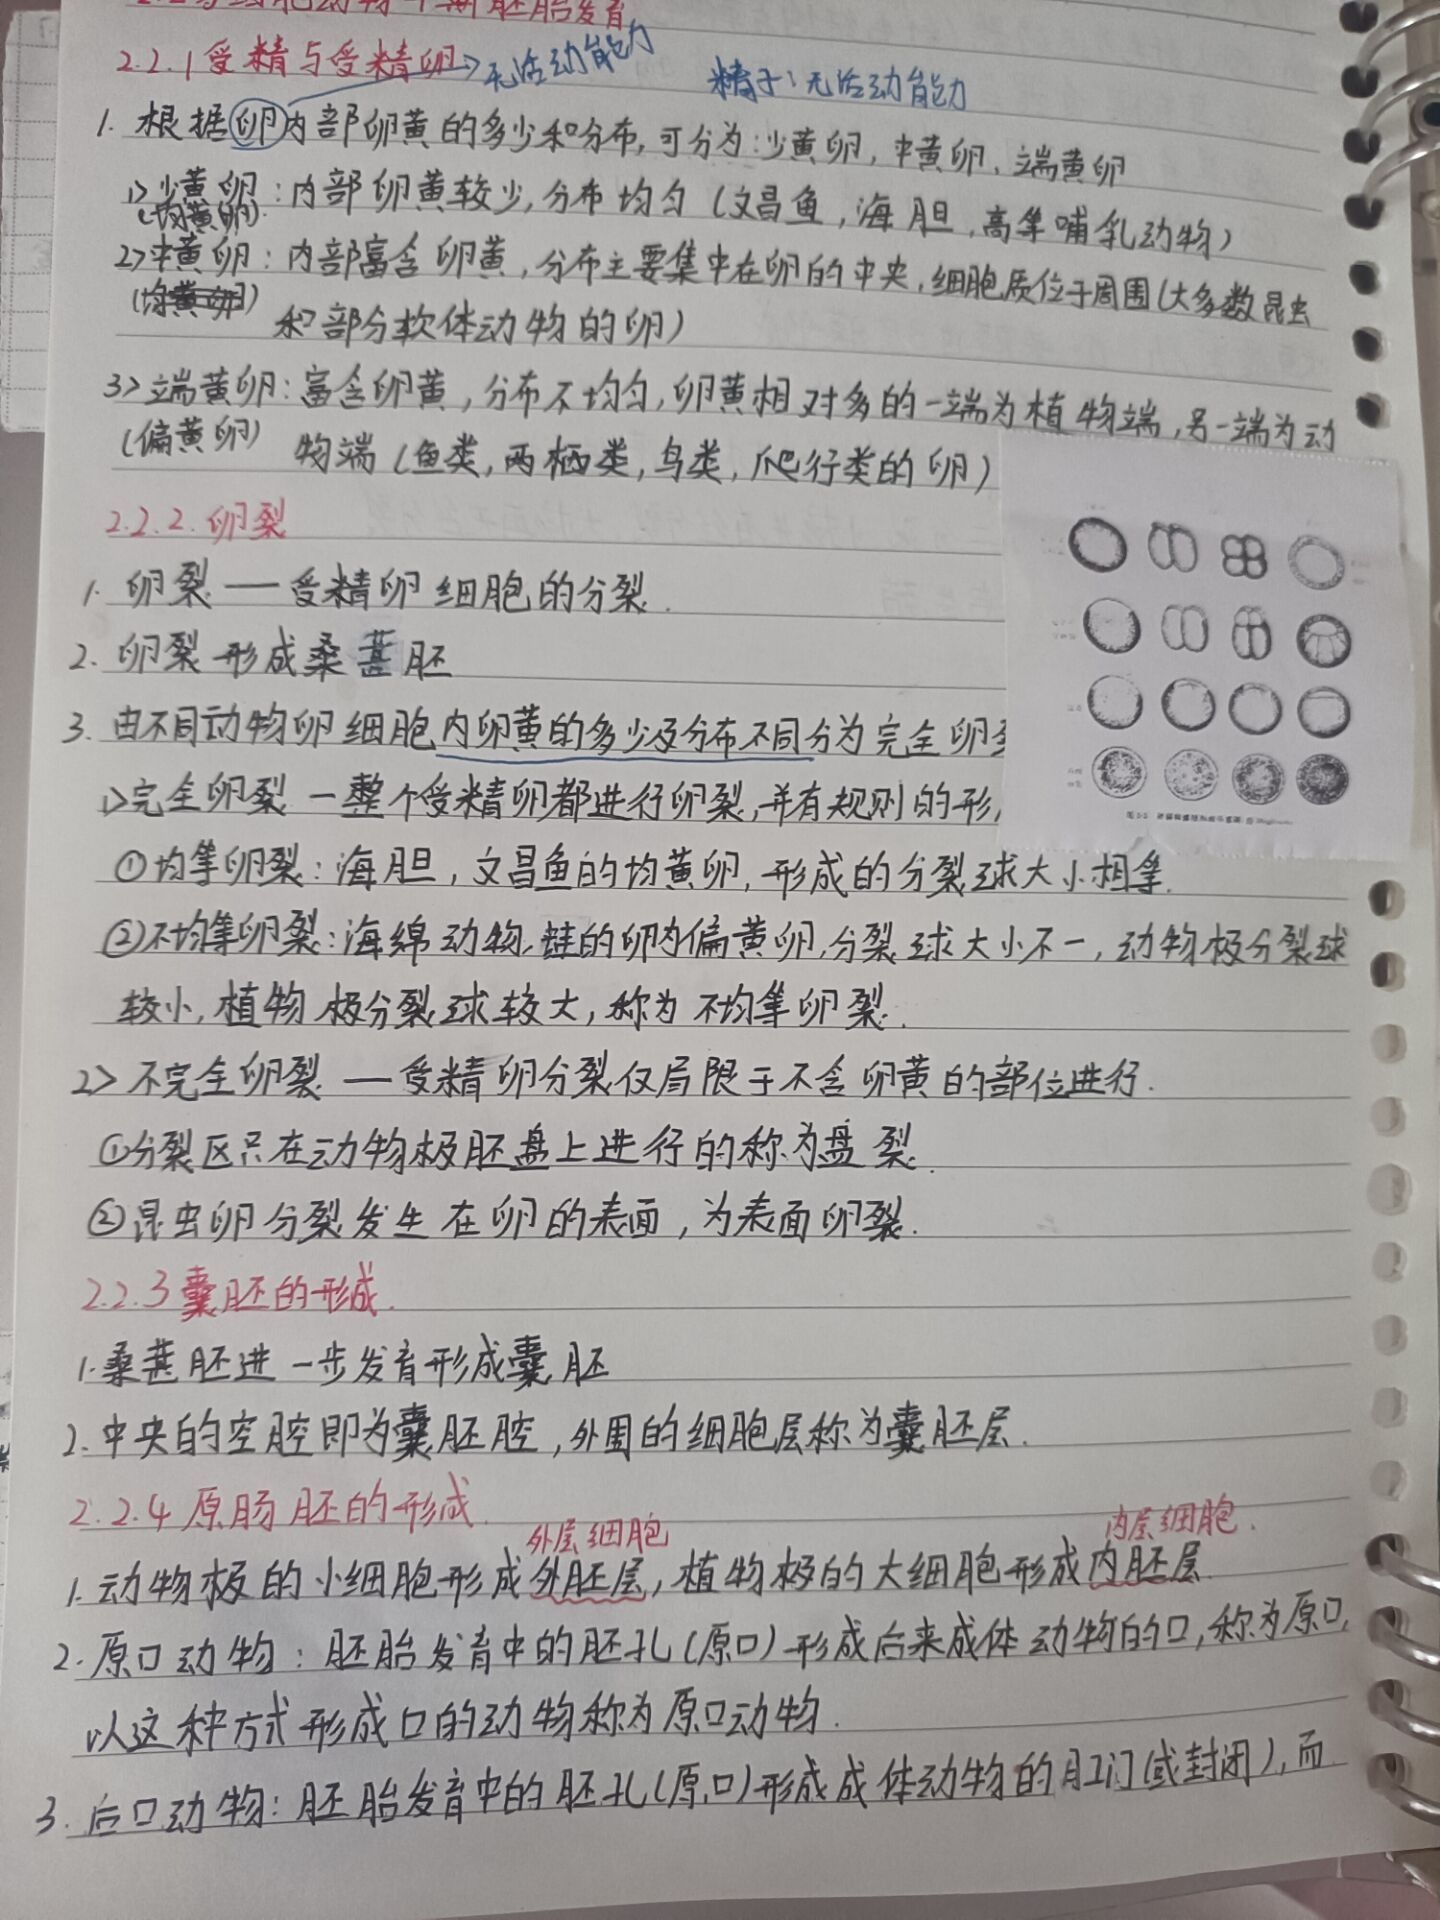 2.2多细胞动物早期胚胎发育
2.2.1受精与受精卵→无活动能力
精子：无活动能力
1. 根据卵内部卵黄的多少和分布，可分为：少黄卵，中黄卵，端黄卵
1>少黄卵：内部卵黄较少，分布均匀（文昌鱼，海胆，高等哺乳动物）
（均黄卵）
2>中黄卵：内部富含卵黄，分布主要集中在卵的中央，细胞质位于周围（大多数昆虫
（均黄卵） 和部分软体动物的卵）
3>端黄卵：富含卵黄，分布不均匀，卵黄相对多的一端为植物端，另一端为动
（偏黄卵） 物端（鱼类，两栖类，鸟类，爬行类的卵）
2.2.2.卵裂
1. 卵裂——受精卵细胞的分裂.
2. 卵裂形成桑葚胚
3. 由不同动物卵细胞内卵黄的多少及分布不同分为完全卵
1>完全卵裂—整个受精卵都进行卵裂，并有规则的形，
①均等卵裂：海胆，文昌鱼的均黄卵，形成的分裂球大小相等.
②不均等卵裂：海绵动物，蛙的卵为偏黄卵，分裂球大小不一，动物极分裂球
较小，植物极分裂球较大，称为不均等卵裂.
2>不完全卵裂——受精卵分裂仅局限于不含卵黄的部位进行.
①分裂区只在动物极胚盘上进行的称为盘裂.
②昆虫卵分裂发生在卵的表面，为表面卵裂.
2.2.3囊胚的形成.
1.桑葚胚进一步发育形成囊胚
2.中央的空腔即为囊胚腔，外围的细胞层称为囊胚层.
2.2.4原肠胚的形成.
外层细胞 内层细胞.
1.动物极的小细胞形成外胚层，植物极的大细胞形成内胚层.
2.原口动物：胚胎发育中的胚孔（原口）形成后来成体动物的口，称为原口，
以这种方式形成口的动物称为原口动物.
3.后口动物：胚胎发育中的胚孔（原口）形成成体动物的肛门（或封闭），而